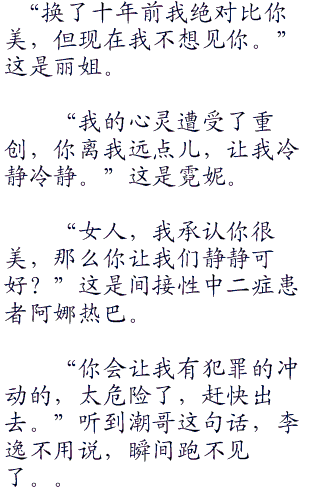 “换了十年前我绝对比你
美，但现在我不想见你。”
这是丽姐。
“我的心灵遭受了重
创，你离我远点儿，让我冷
静冷静。”这是霓妮。
“女人，我承认你很
美，那么你让我们静静可
好？”这是间接性中二症患
者阿娜热巴。
“你会让我有犯罪的冲
动的，太危险了，赶快出
去。”听到潮哥这句话，李
逸不用说，瞬间跑不见
了。。